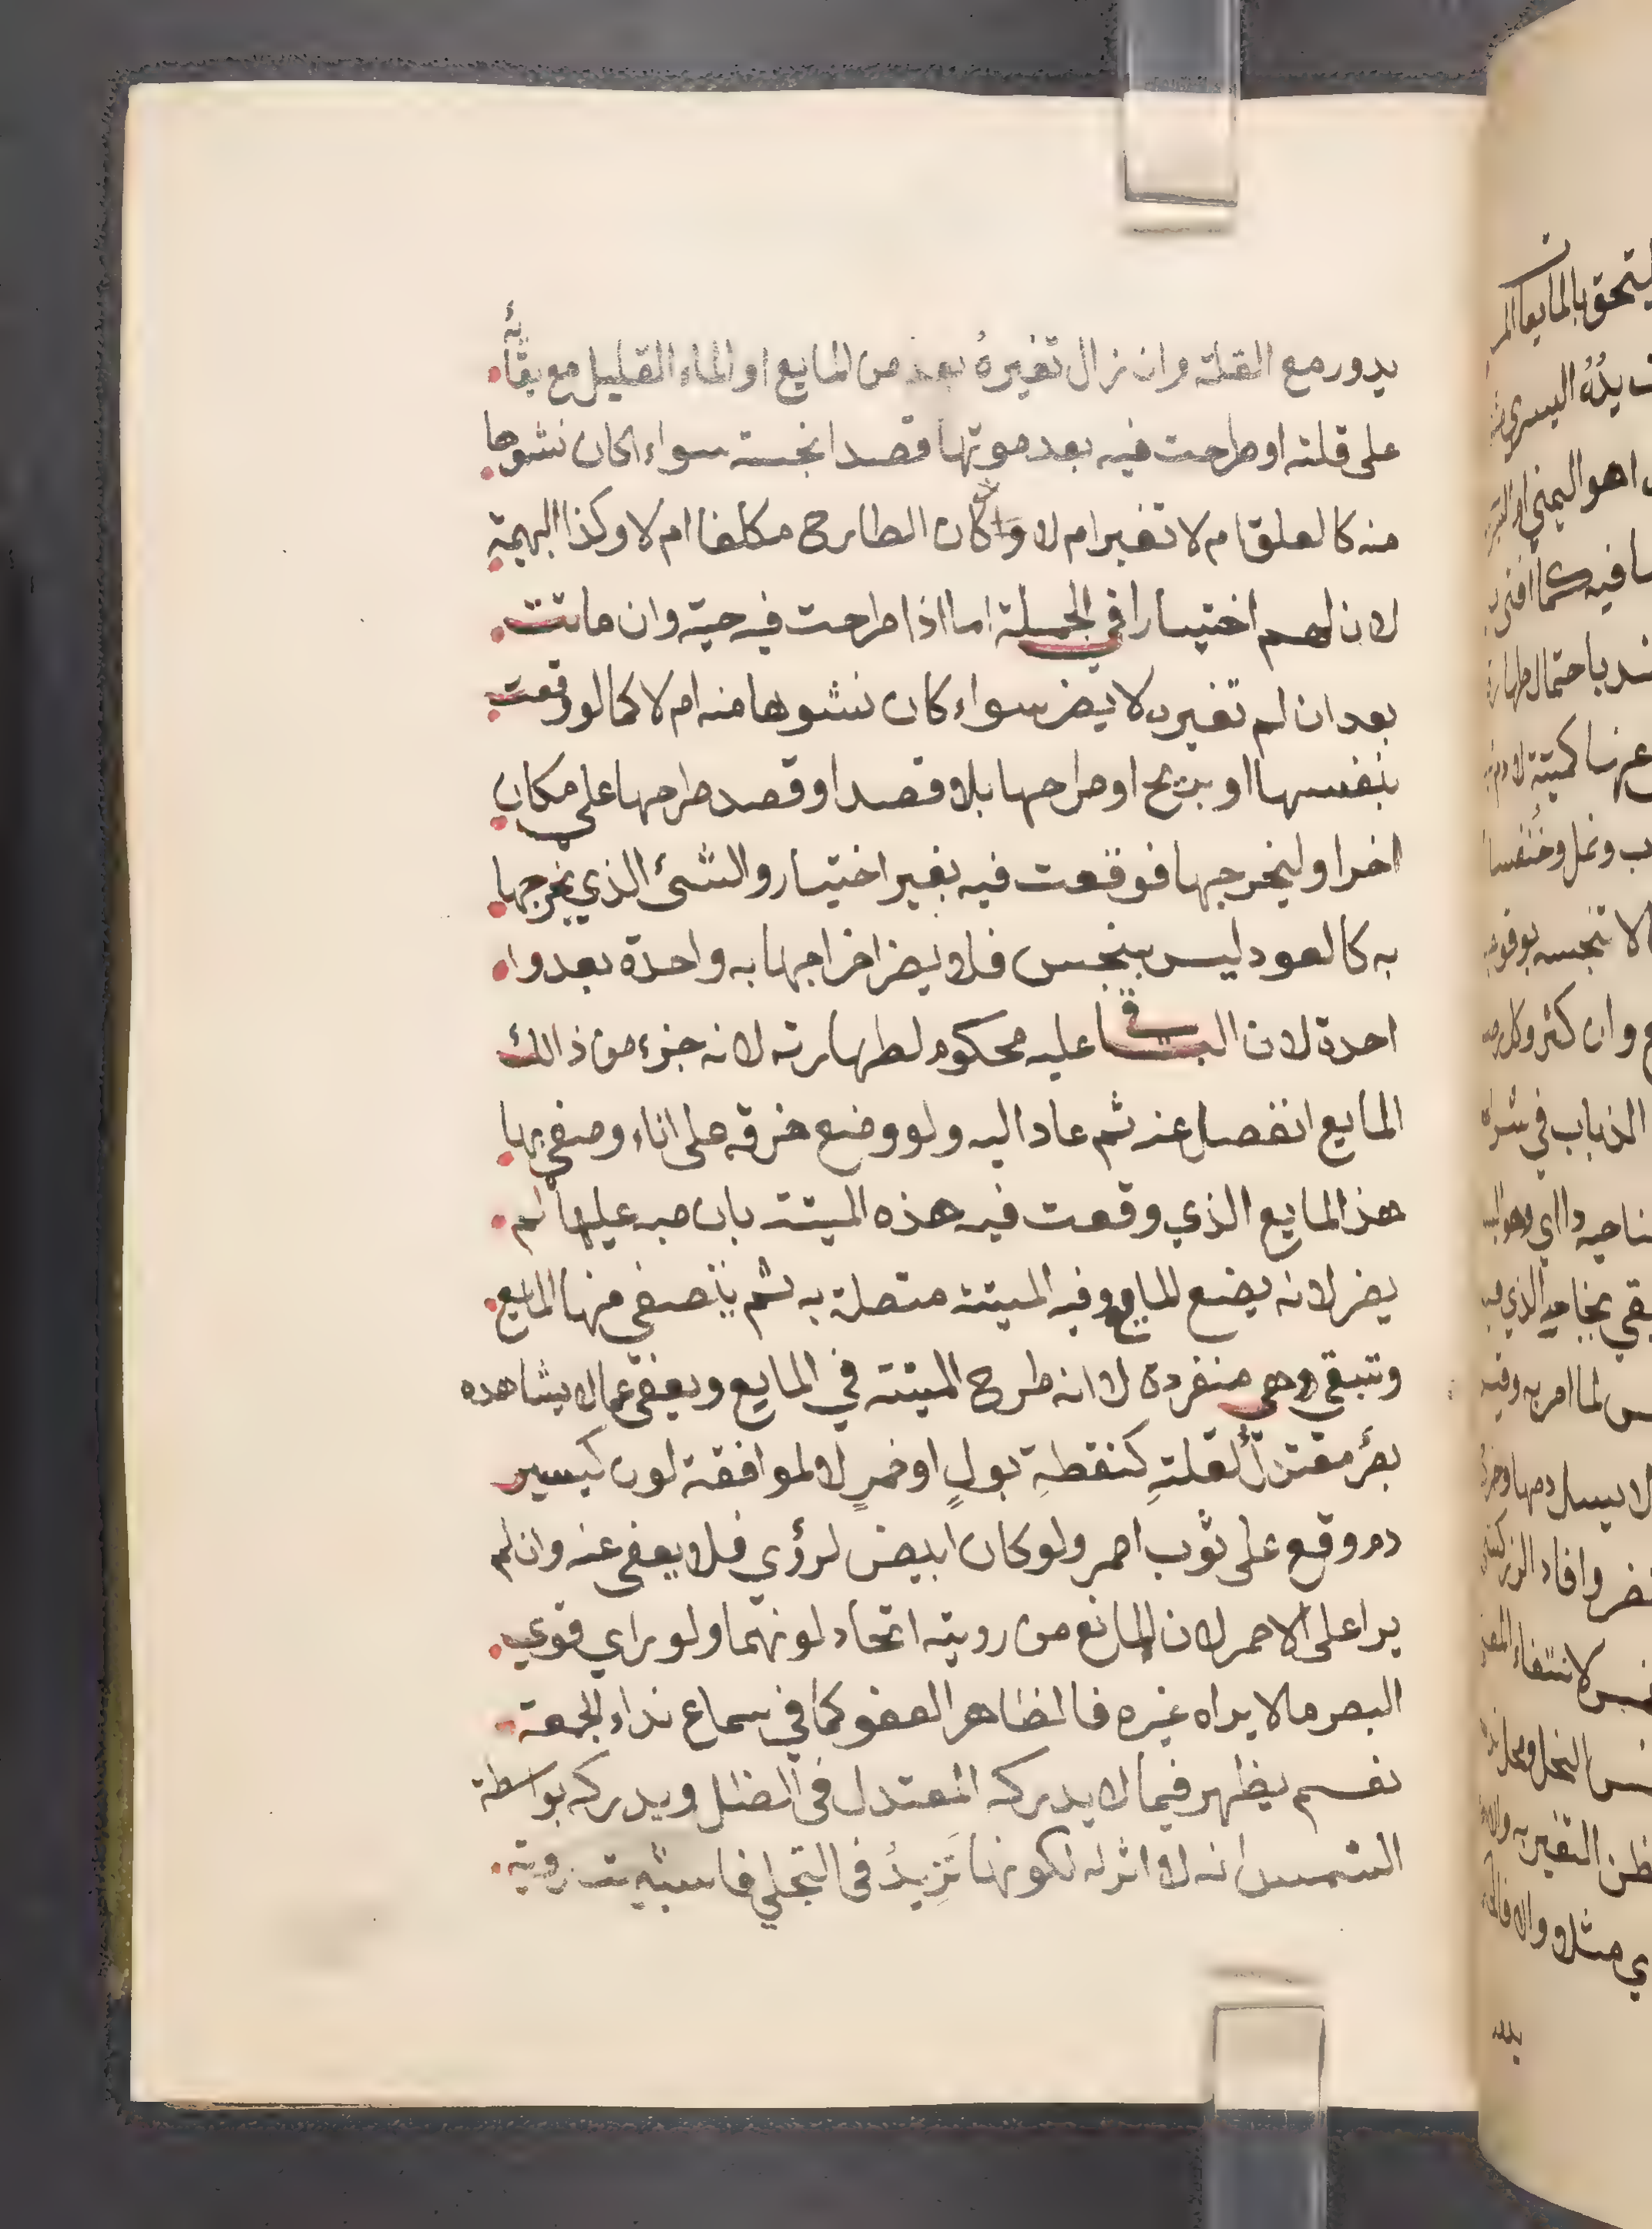 يدور مع القلة وان زال تغيره بعد من المايع او الماء القليل مع بقائه
على قلته او طرحت فيه بعد موتها قصدا نجسته سواء اكان نشوها
منه كالعلق ام لا تغير ام لا وكان الطارح مكلفا ام لا وكذا البهيمة
لان لهم اختيارا في الجملة اما اذا طرحت فيه حية وان ماتت
بعد ان لم تغيره لا يضر سواء كان نشوها منه ام لا كما لو وقعت
بنفسها او بريح او طرحها بلا قصد او قصد طرحها على مكان
اخر او ليخرجها فوقعت فيه بغير اختيار والشئ الذي يخرجها
به كالعود ليس بنجس فلا يضر اخراجها به واحدة بعد وا
احدة لان الباقي عليه محكوم لطهارته لانه جزء من ذالك
المايع انفصل عنه ثم عاد اليه ولو وضع خرقه على اناء وصفي بها
هذ المايع الذي وقعت فيه هذه الميتة بان صبه عليها لم
يضر لانه يضع المايع وفيه الميتة متصلة به ثم يتصفي منها المايع
وتبقي وهي منفردة لا انه طرح الميتة في المايع ويعفى عما لا يشاهده
بصر معتدل لقلته كنقطة بول او خمر لا لموافقة لون كيسير
دم وقع على ثوب احمر ولو كان ابيض لرؤي فلا يعفى عنه وان لم
يرا على الاحمر لان المانع من رويته اتحاد لونهما ولو راي قوي
البصر مالا يراه غيره فالظاهر العفو كما في سماع نداء الجمعة
نعم يظهر فيما لا يدركه المعتدل في الظل ويدركه بواسطة
الشمس انه لا اثر له لكونها تزيد في التجلي فاشبهت روية